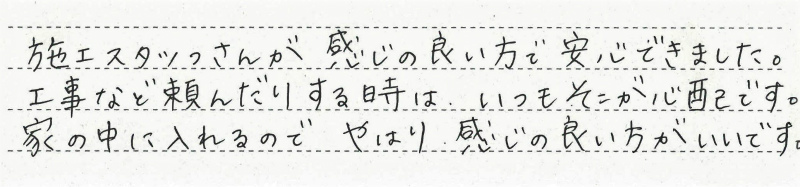 施工スタッフさんが感じの良い方で安心できました。
工事など頼んだりする時は、いつもそこが心配です。
家の中に入れるので やはり 感じの良い方がいいです。